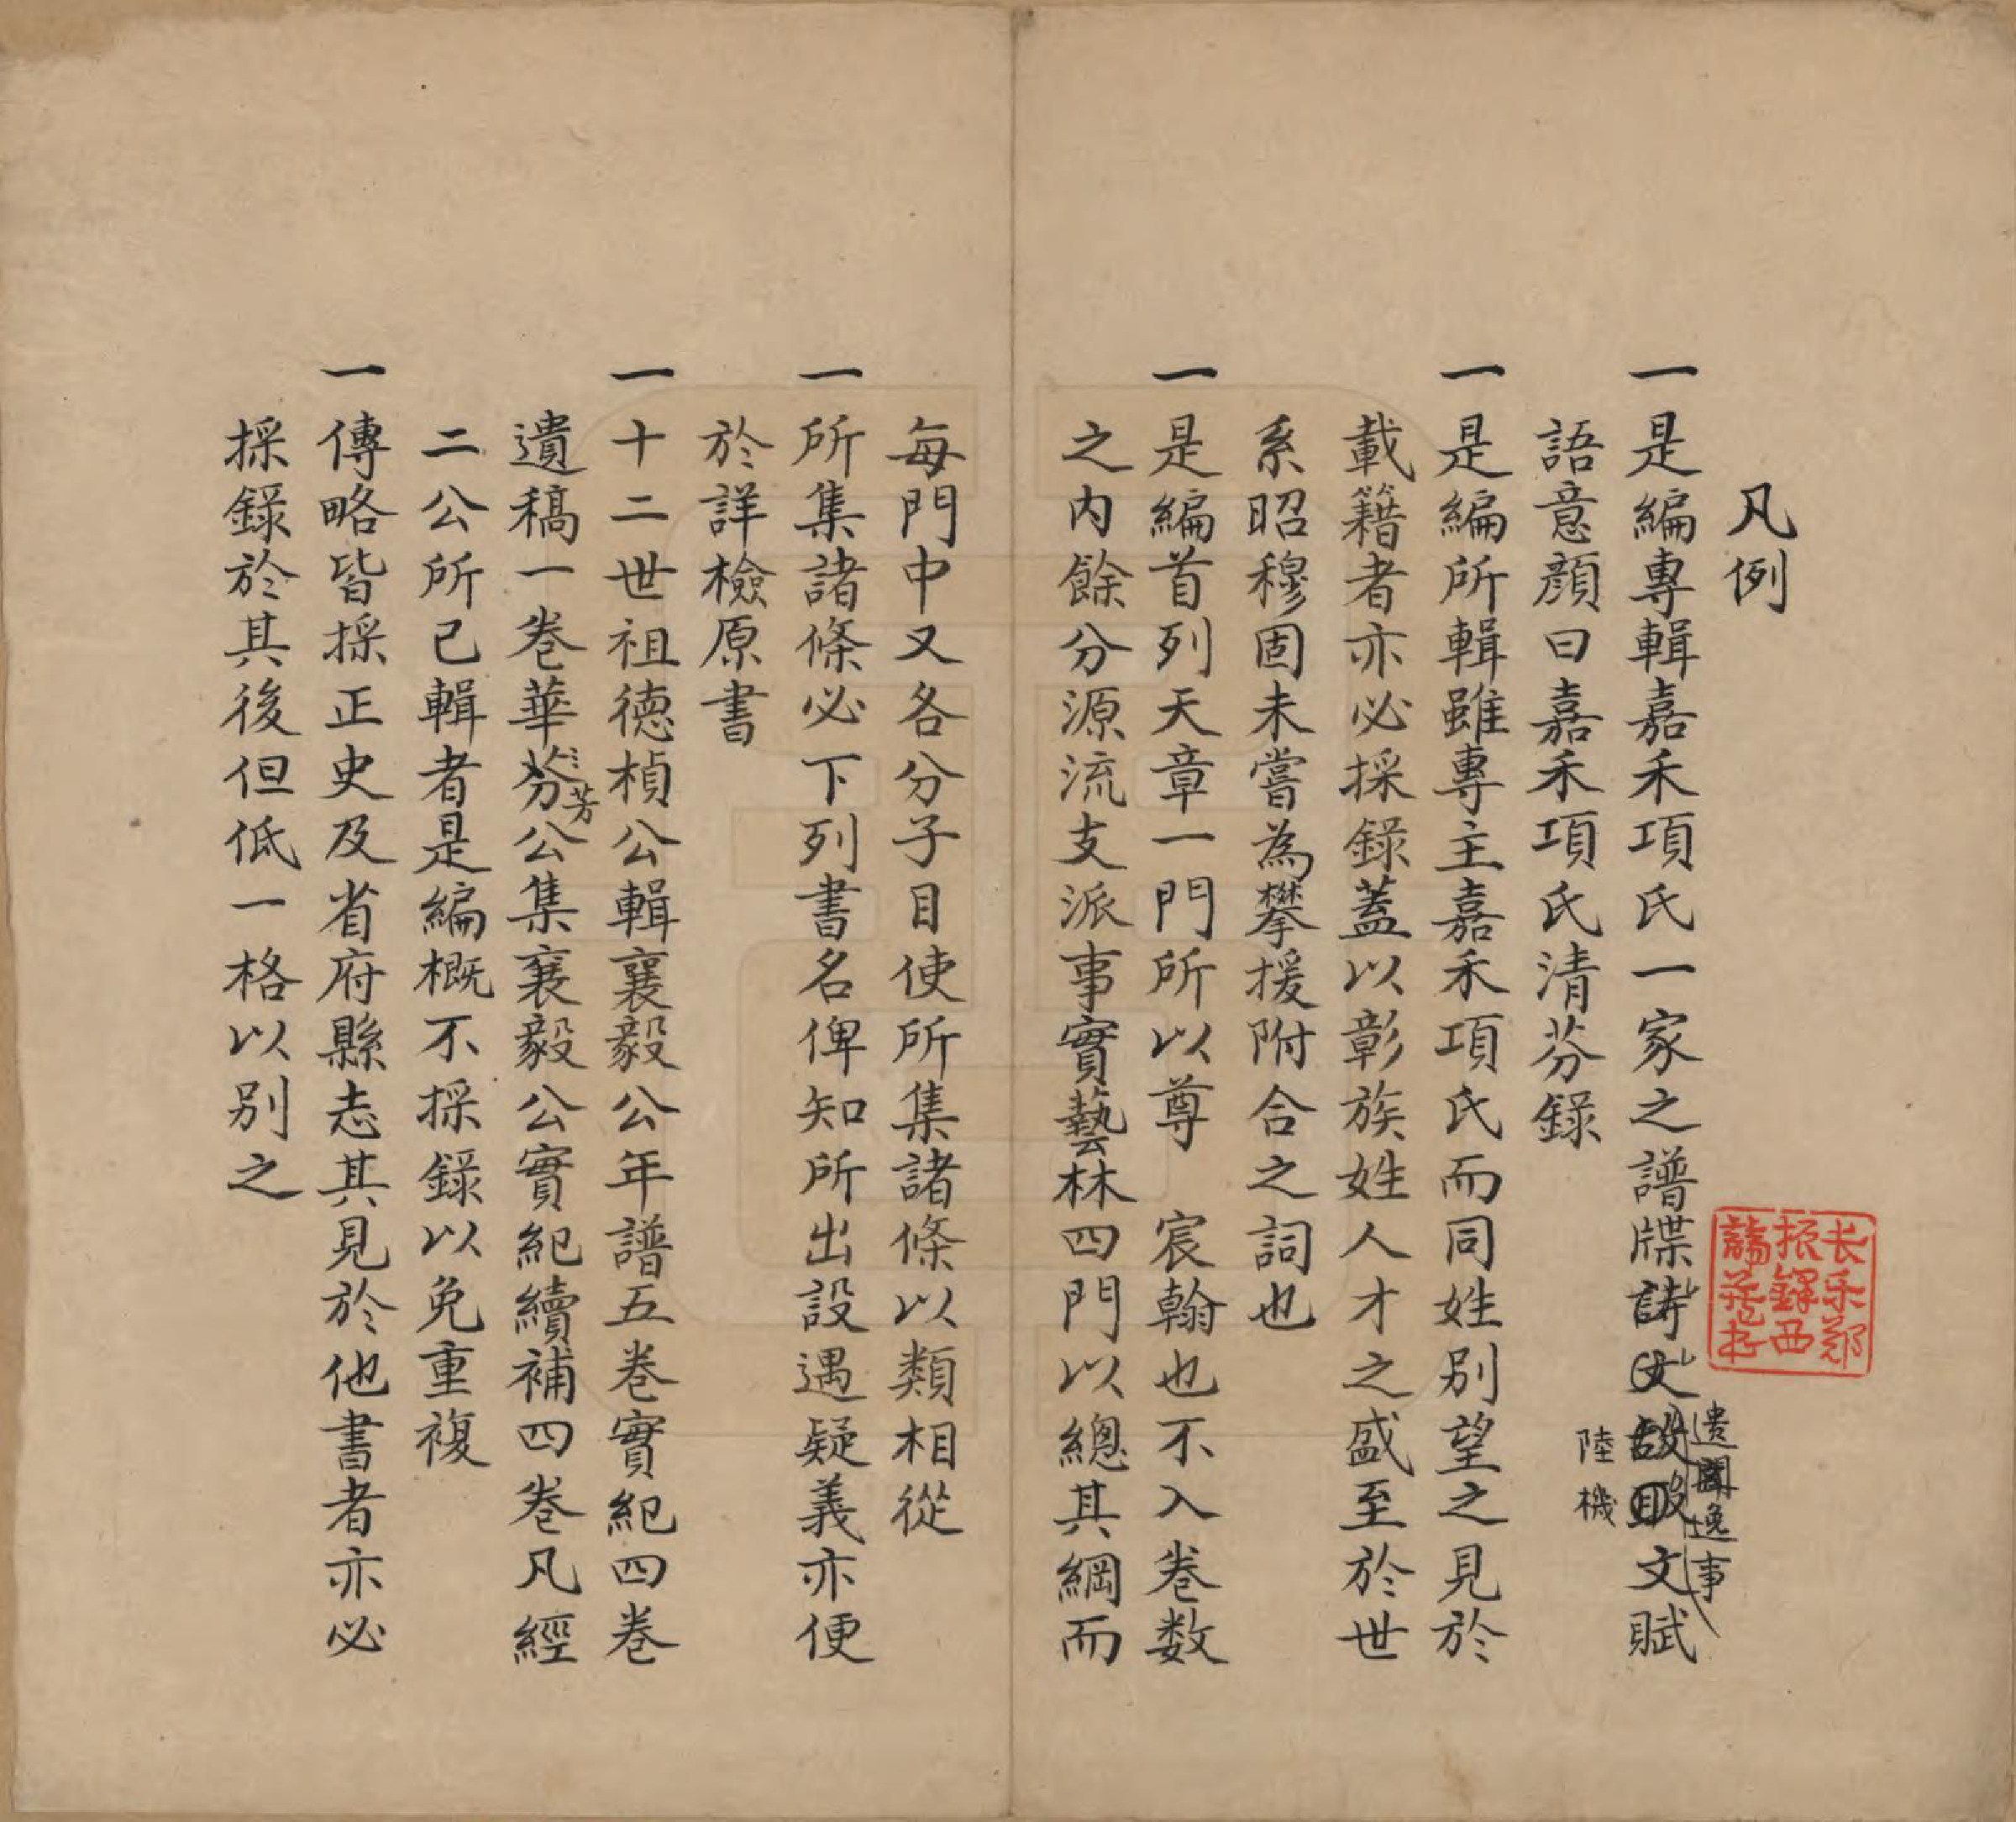 凡例
一是編專輯嘉禾項氏一家之譜牒詩文故取文賦
遺聞逸事
陸機
語意顏曰嘉禾項氏清芬錄
一是編所輯雖專主嘉禾項氏而同姓別望之見於
載籍者亦必採錄蓋以彰族姓人才之盛至於世
系昭穆固未嘗為攀援附合之詞也
一是編首列天章一門所以尊　宸翰也不入卷数
之内餘分源流支派事實藝林四門以總其綱而
每門中又各分子目使所集諸條以類相從
一所集諸條必下列書名俾知所出設遇疑義亦便
於詳檢原書
一十二世祖德楨公輯襄毅公年譜五卷實紀四卷
遺稿一卷華芬公集襄毅公實紀續補四卷凡經
芳
二公所已輯者是編概不採錄以免重複
一傳略皆採正史及省府縣志其見於他書者亦必
採錄於其後但低一格以別之
长乐郑
振鐸西
諦藏书